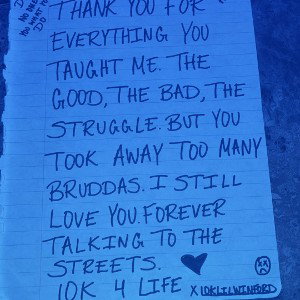 THANK YOU FOR
EVERYTHING YOU
TAUGHT ME. THE
GOOD, THE BAD, THE
STRUGGLE. BUT YOU
TOOK AWAY TOO MANY
BRUDDAS. I STILL
LOVE YOU. FOREVER
TALKING TO THE
STREETS.
10K 4 LIFE X 10KLILWINFORD